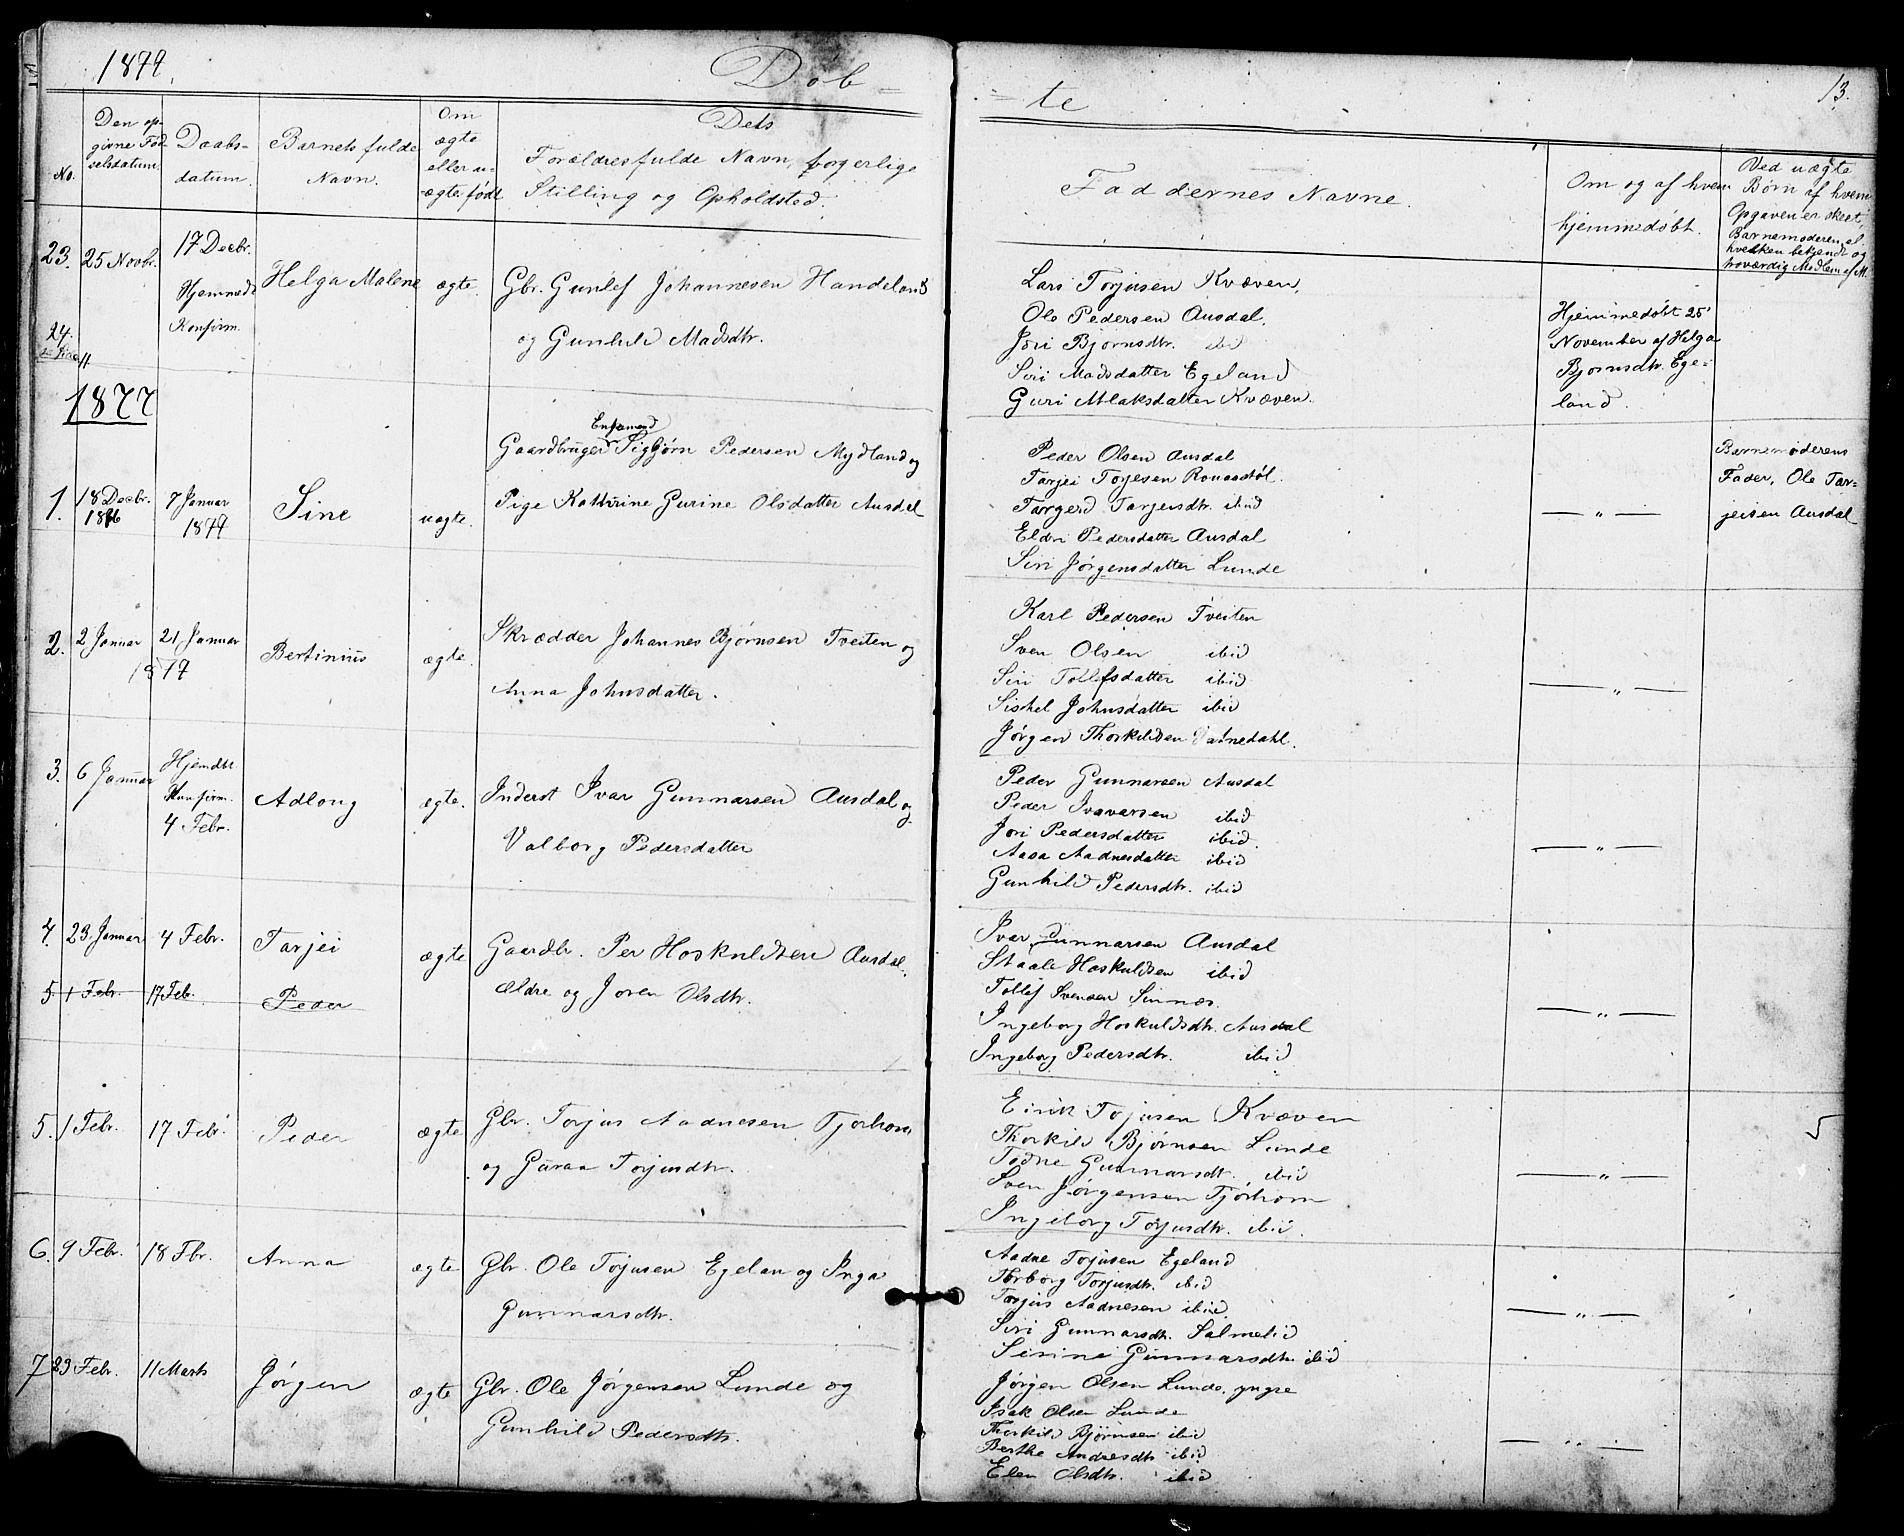 1879.
Døb-
-te
13.
No.
Den op-
givne Fød
selsdatum.
Daabs-
datum.
Barnets fulde
Navn.
Om
ægte
eller u-
ægte født
Dets
Forældres fulde Navn, borgerlige
Stilling og Opholdsted.
Faddernes Navne.
Om og af hvem
hjemmedøbt.
Ved uægte
Børn af hvem
Opgaven er skeet,
Barnemoderen, el
hvilken bekjendt og
troværdig Medlem af M.
23. 25 Novbr. 17 Decbr.
Hjemmedt
Konfirm.
Helga Malene ægte. Gbr. Gunlef Johannesen Handeland
og Gunhild Madsdtr.
Lars Torjusen Kvæven,
Ole Pedersen Ausdal,
Jori Bjørnsdtr. ibid
Siri Madsdatter Egeland
Guri Aslaksdatter Kvæven.
Hjemmedøbt 25'
November af Helga
Bjørnsdtr. Ege-
land.
24.
1877
1. 18 Decbr.
1876
7 Januar
1879
Sine uægte. Gaardbruger Enkemand Sigbjørn Pedersen Mydland og
Pige Kathrine Gurine Olsdatter Ausdal
Peder Olsen Ausdal
Tarjei Torjesen Ronaastøl.
Torgerd Tarjeisdtr. ibid
Eldri Pedersdatter Ausdal
Siri Jørgensdatter Lunde
— " —
Barnemøderens
Fader, Ole Tar-
jeisen Ausdal
2. 2 Januar 21 Januar
1879
Bertinius ægte. Skrædder Johannes Bjørnsen Tveiten og
Anna Johnsdatter.
Karl Pedersen Tveiten
Sven Olsen ibid
Siri Tollefsdatter ibid
Sishel Johnsdatter ibid
Jørgen Thorkildsen Vatnedahl.
— " —
3. 6 Januar Hjemdbt.
Konfirm.
4 Febr.
Adlong ægte. Inderst Ivar Gunnarsen Ausdal og
Valborg Pedersdatter
Peder Gunnarsen Ausdal
Peder Ivavarsen ibid
Jori Pedersdatter ibid.
Aasa Aadnesdatter ibid
Gunhild Pedersdtr. ibid
— " —
4. 23 Januar 4 Febr. Tarjei ægte Gaardbr. Per Hoskuldsen Ausdal,
Ældre og Joren Olsdtr.
5. 1 Febr. 17 Feb. Peder
Ivar Gunnarsen Ausdal
Staale Hoskuldsen ibid
Tollef Svensen Sinnes.
Ingeborg Hoskuldsdtr. Ausdal
Ingeborg Pedersdtr. ibid
— " —
5. 1 Febr. 17 Febr. Peder ægte Gbr. Torjus Aadnesen Tjorhom
og Guraa Torjusdtr.
Eirik Torjusen Kvæven
Thorkild Bjørnsen Lunde
Todne Gunnarsdt. ibid
Sven Jørgensen Tjorhom
Ingeborg Torjusdtr. ibid.
— " —
5
6. 9 Febr. 18 Fbr. Anna ægte Gbr. Ole Torjusen Egelan og Inga
Gunnarsdtr.
Aadne Torjusen Egeland
Thorborg Torjusdtr. ibid
Torjus Aadnesen ibid
Siri Gunnarsdtr. Salmelid
Serine Gunnarsdtr. ibid
— " —
7 23 Febr. 11 Marts Jørgen ægte Gbr. Ole Jørgensen Lunde og
Gunhild Pedersdtr.
Jørgen Olsen Lunde, yngre
Isak Olsen Lunde
Thorkild Bjørnsen ibid
Berthe Andresdtr ibid
Elen Olsdtr. ibid
— " —